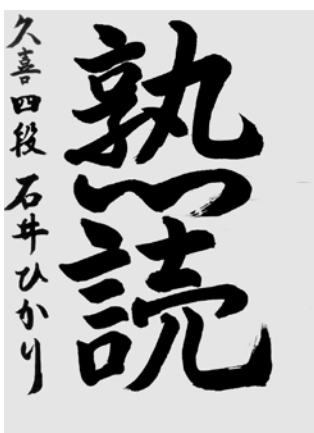 熟読
久喜四段 石井ひかり